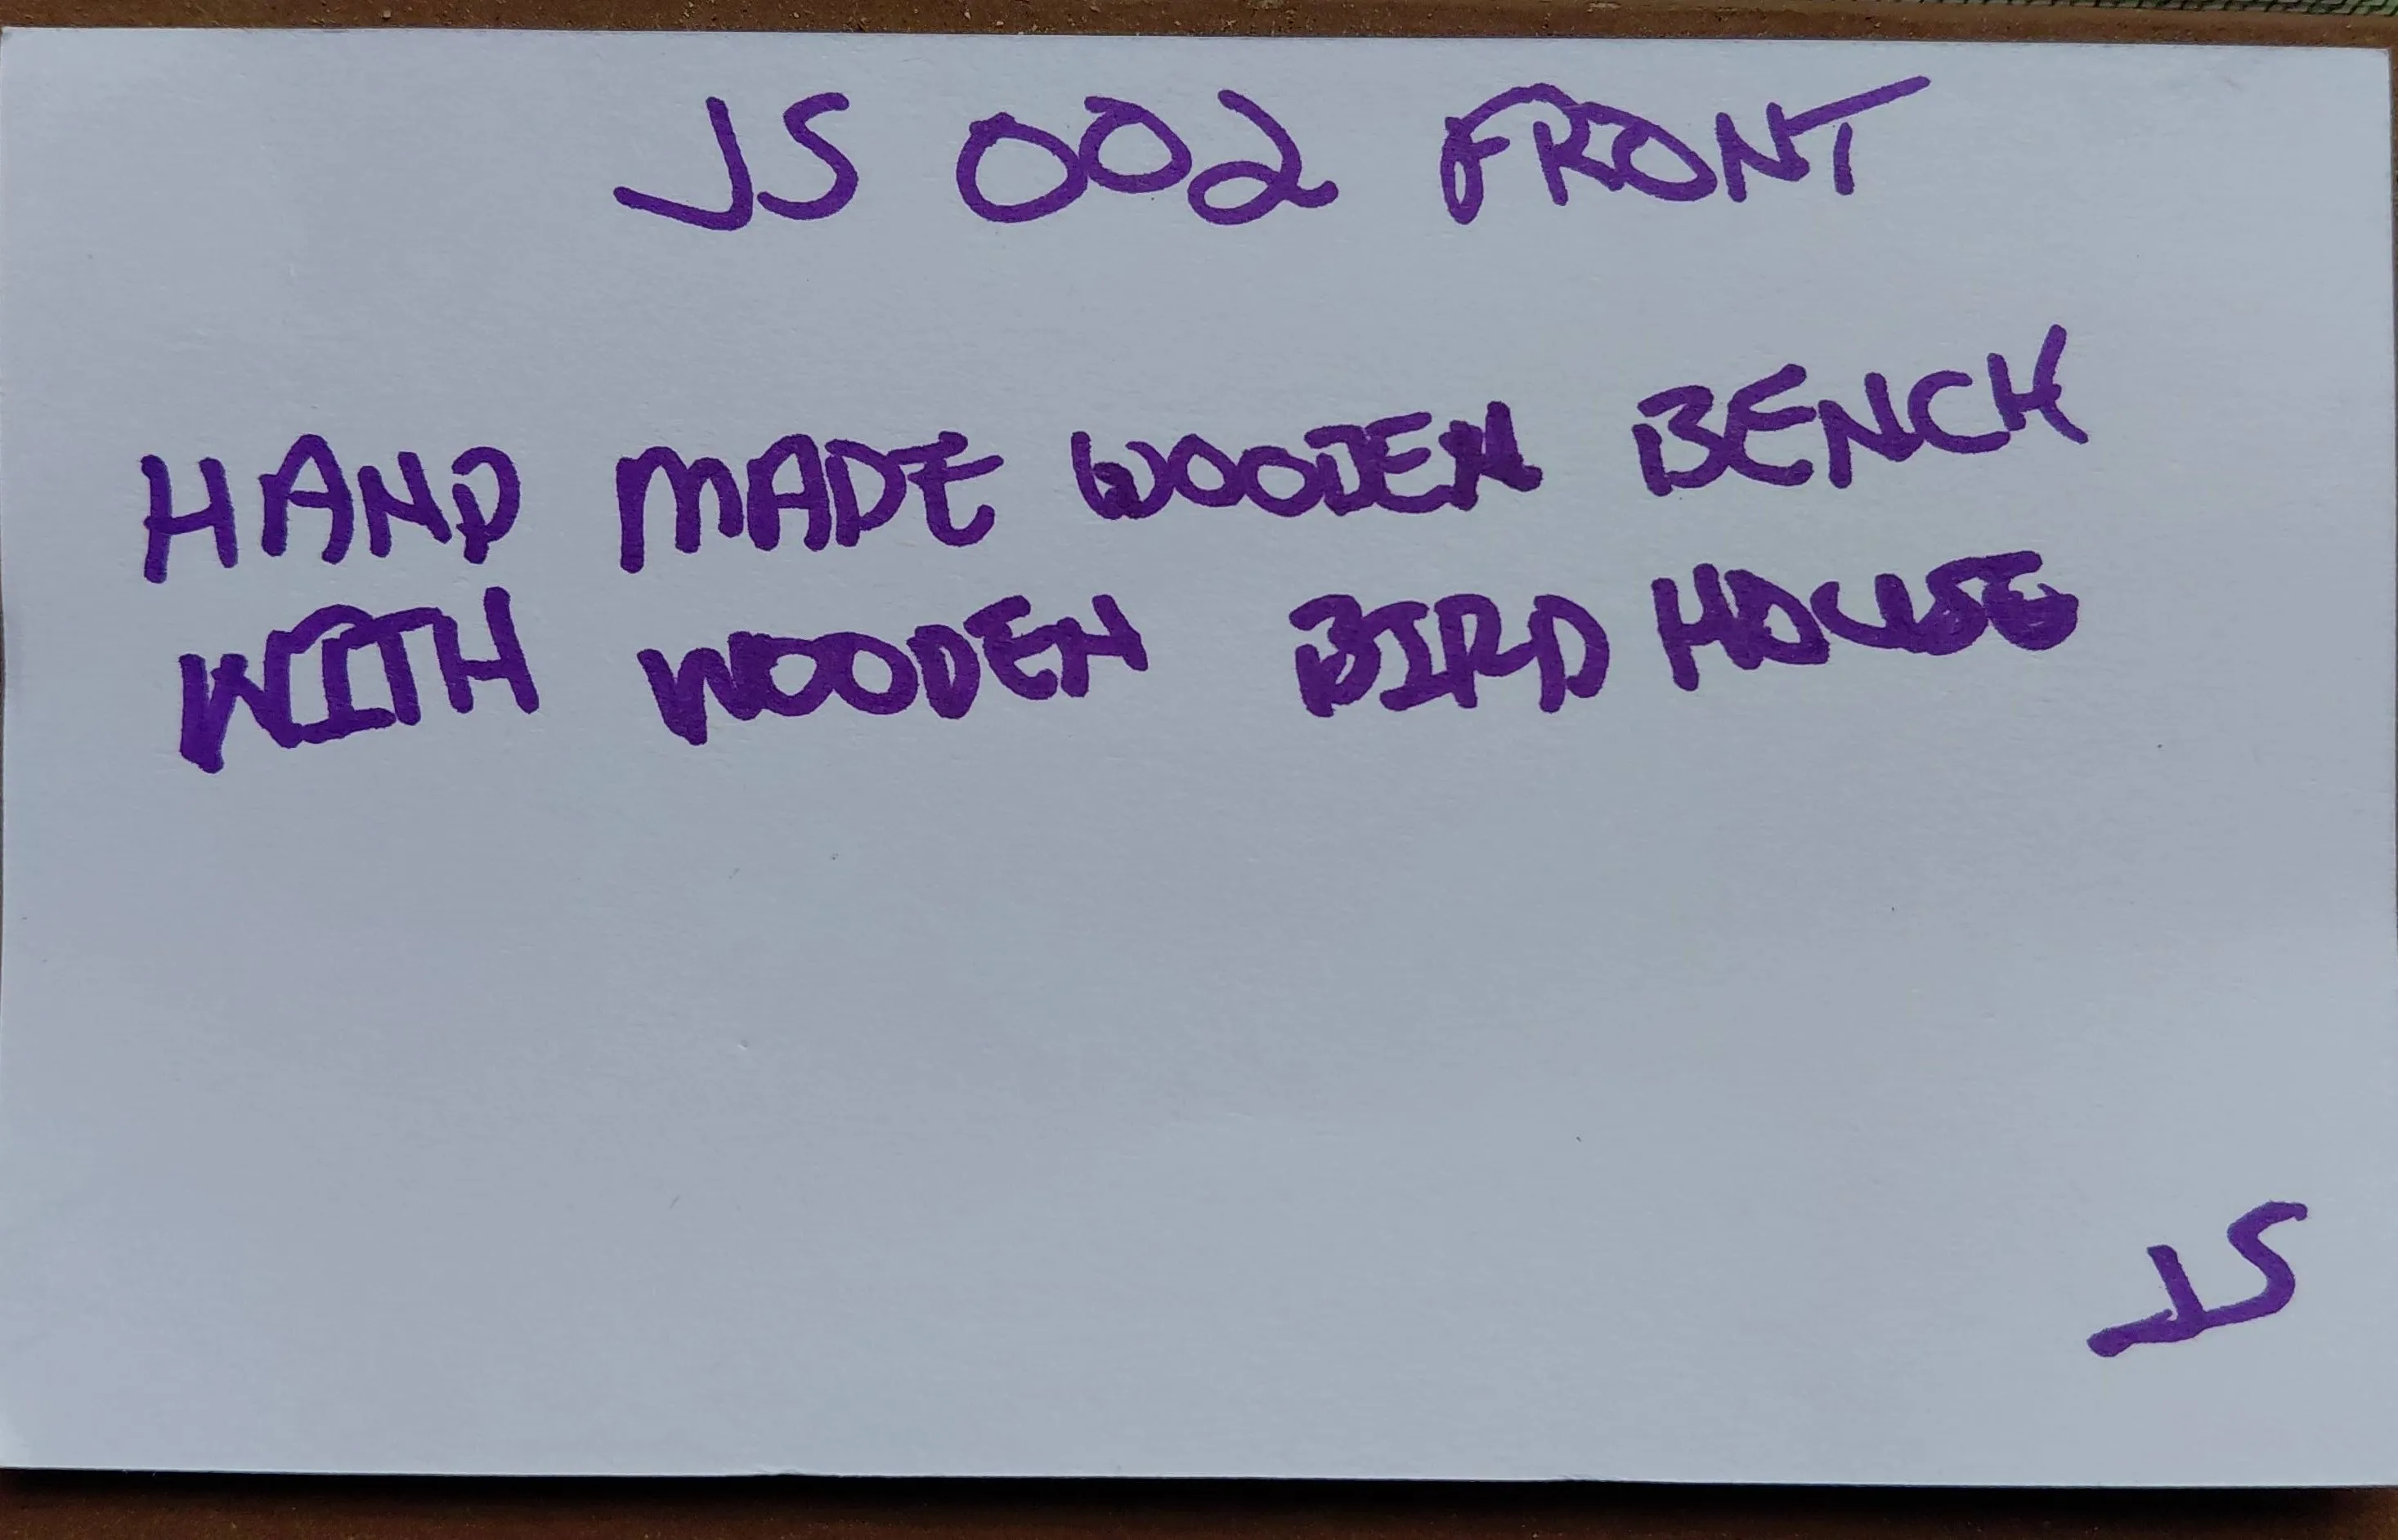 JS 002 FRONT
HAND MADE WOODEN BENCH
WITH WOODEN BIRD HOUSE
JS